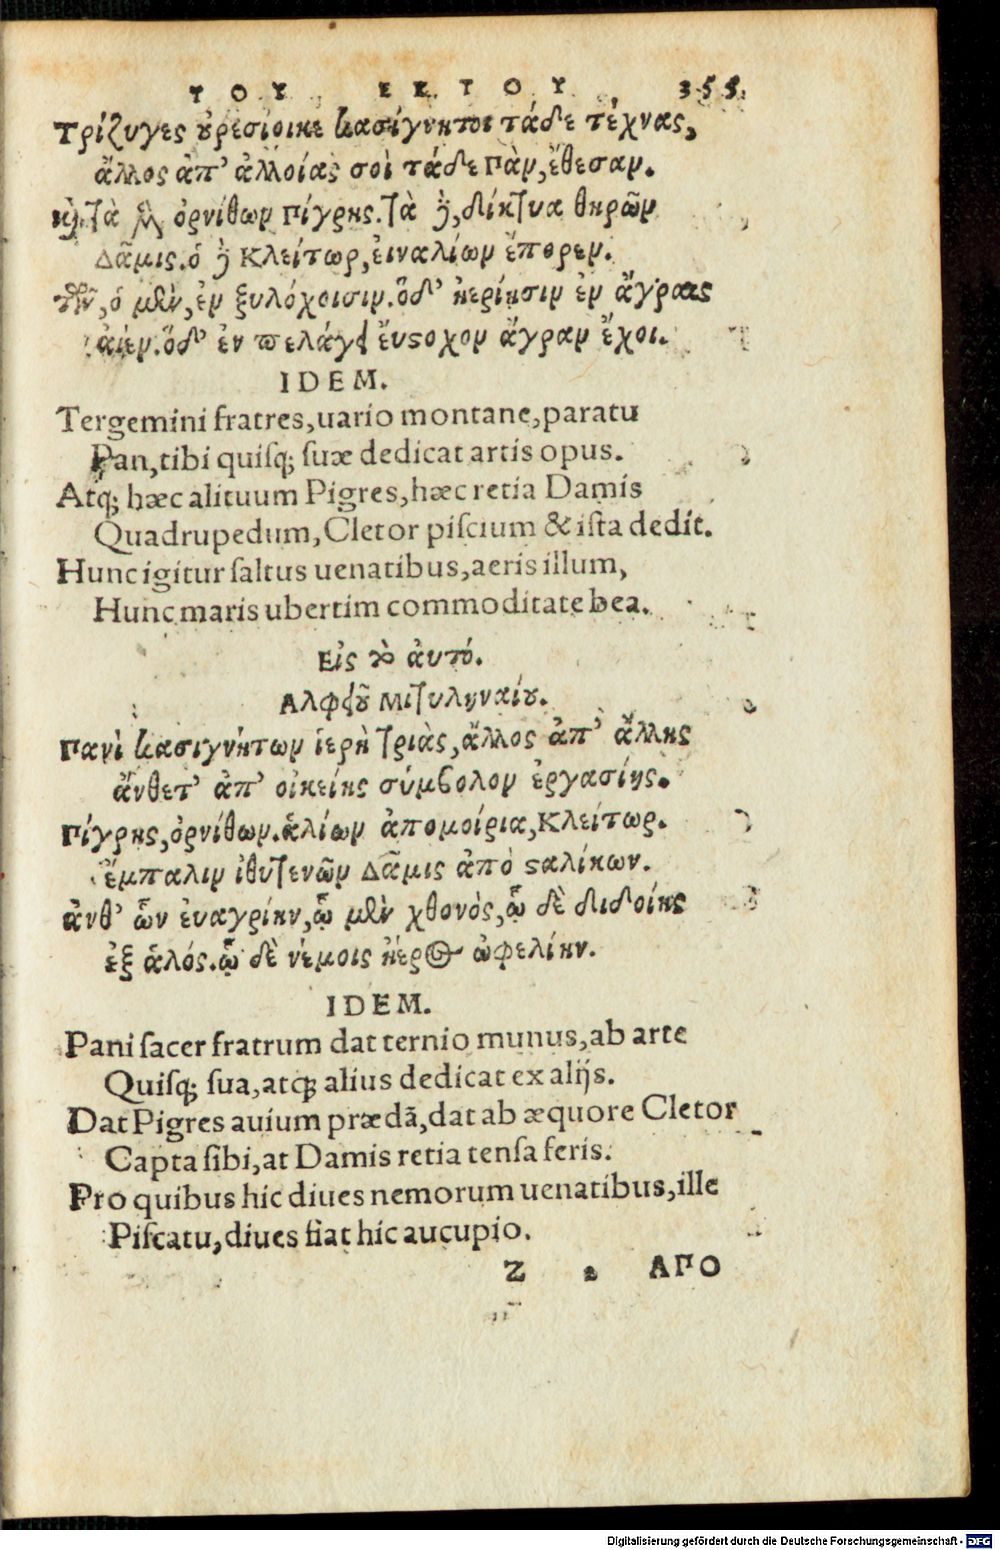 ΤΟΥ ΕΚΤΟΥ 355.
Τρίζυγες ὀυρεσίοικε κασίγνητοι τάδε τέχνας,
ἄλλος ἀπ' ἀλλοίας σοὶ τάδε Πὰν, ἔθεσαν.
καὶ τὰ μὲν ὀρνίθων Πίγρης. τὰ δὲ, δίκτυα θηρῶν
Δᾶμις. ὁ δὲ Κλείτωρ, ἐιναλίων ἔπορεν.
τῶν, ὁ μὲν, ἐν ξυλόχοισιν. ὅδ' ἠερίησιν ἐν ἄγραις
ἀιέν. ὅδ' ἐν πελάγει ἔυστοχον ἄγραν ἔχοι.
IDEM.
Tergemini fratres, uario montane, paratu
Pan, tibi quisq; suæ dedicat artis opus.
Atq; hæc alituum Pigres, hæc retia Damis
Quadrupedum, Cletor piscium & ista dedit.
Hunc igitur saltus uenatibus, aeris illum,
Hunc maris ubertim commoditate bea.
Εἰς τὸ ἀυτό.
Αλφειοῦ Μιτυληναίου.
Πανὶ κασιγνήτων ἱερὴ τριὰς, ἄλλος ἀπ' ἄλλης
ἄνθετ' ἀπ' οἰκείης σύμβολον ἐργασίης.
Πίγρης, ὀρνίθων. ἁλίων ἀπομοίρια, Κλείτωρ.
ἔμπαλιν ἰθυτενῶν Δᾶμις ἀπὸ σταλίκων.
ἀνθ' ὧν ἐυαγρίην, ᾧ μὲν χθονὸς, ᾧ δὲ διδοίης
ἐξ ἁλός. ᾧ δὲ νέμοις ἠέρος ὠφελίην.
IDEM.
Pani sacer fratrum dat ternio munus, ab arte
Quisq; sua, atq; alius dedicat ex alijs.
Dat Pigres auium prædā, dat ab æquore Cletor
Capta sibi, at Damis retia tensa feris.
Pro quibus hic diues nemorum uenatibus, ille
Piscatu, diues fiat hic aucupio.
Z 2 ΑΠΟ
Digitalisierung gefördert durch die Deutsche Forschungsgemeinschaft - DFG